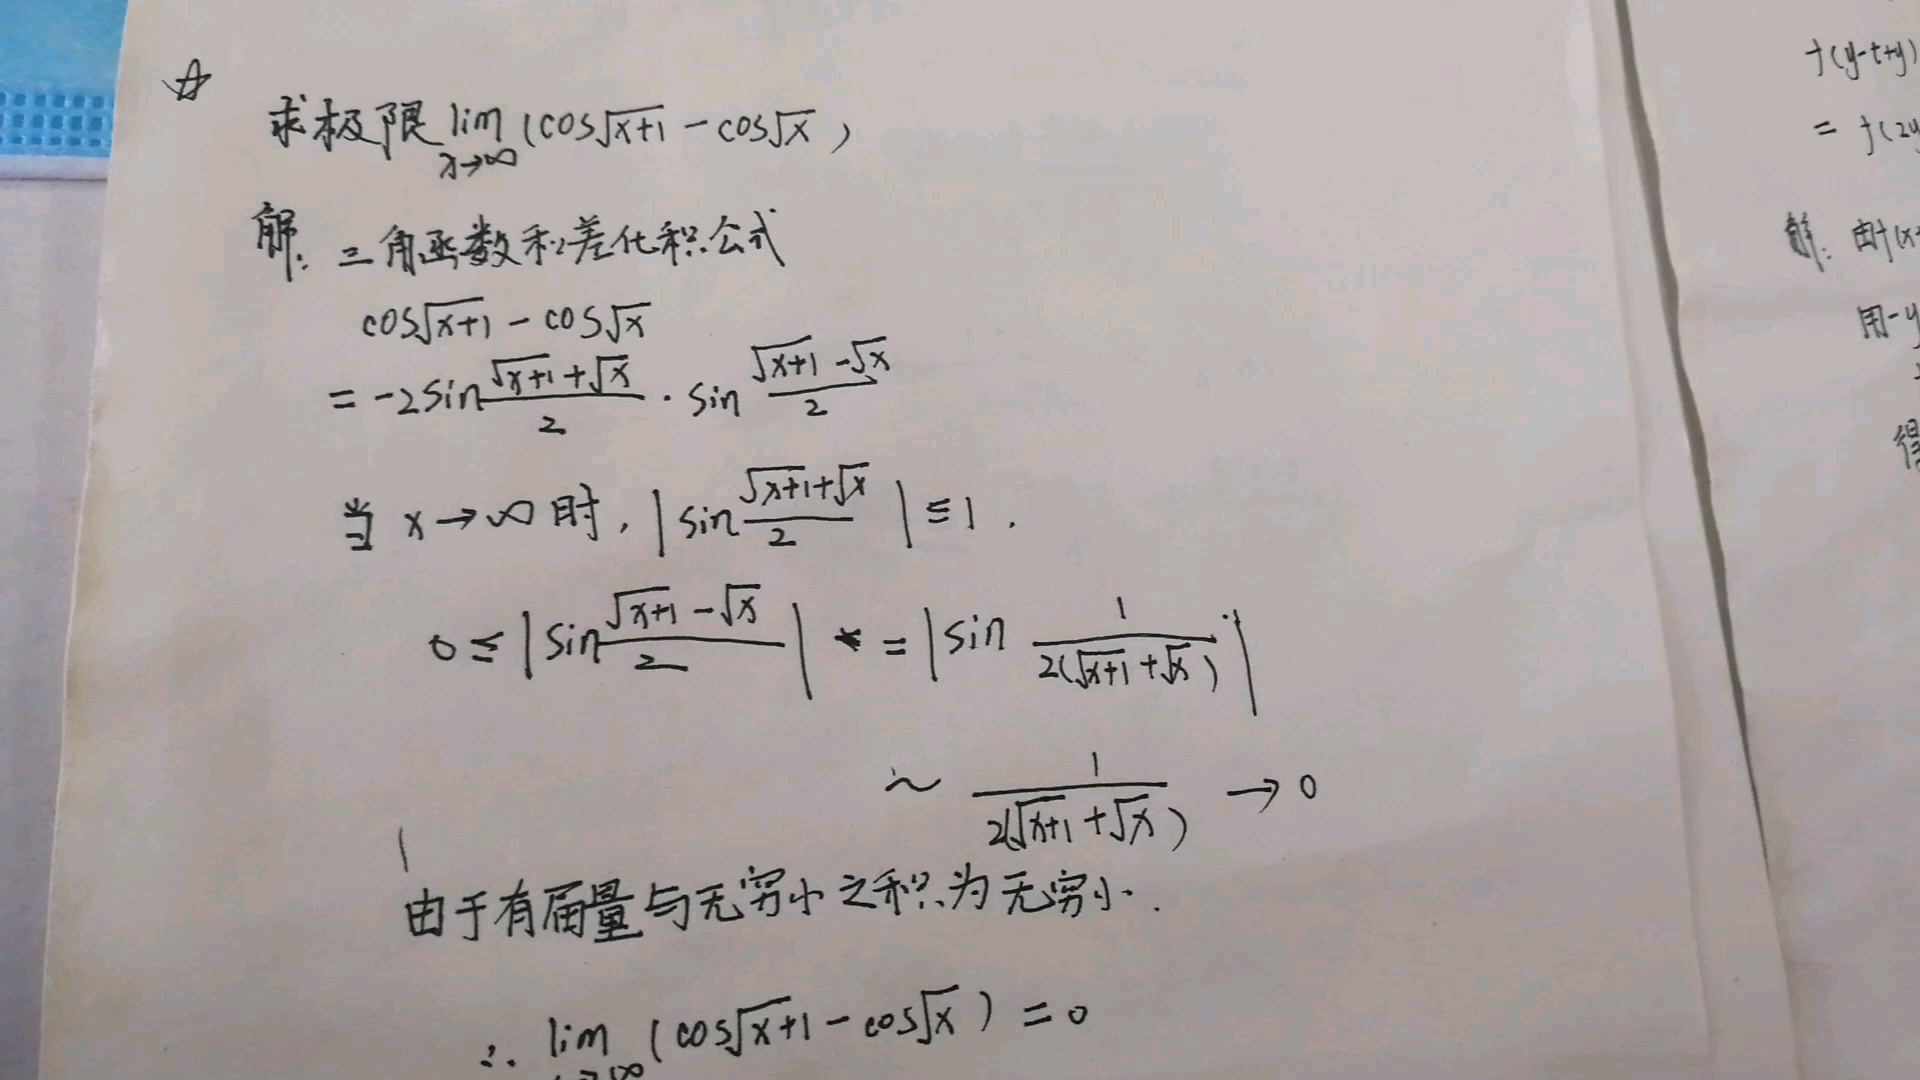 ☆
求极限 lim (cos√x+1 - cos√x)
x→∞
解: 三角函数和差化积公式
cos√x+1 - cos√x
= -2sin (√x+1 + √x)/2 · sin (√x+1 - √x)/2
当 x→∞时, |sin (√x+1 + √x)/2| ≤ 1.
0 ≤ |sin (√x+1 - √x)/2| = |sin 1/2(√x+1 + √x)|
~ 1/2(√x+1 + √x) → 0
由于有届量与无穷小之积为无穷小.
∴ lim (cos√x+1 - cos√x) = 0
x→∞
f(y-t+y)
= f(2y
解: 由f(x+
用-y
得